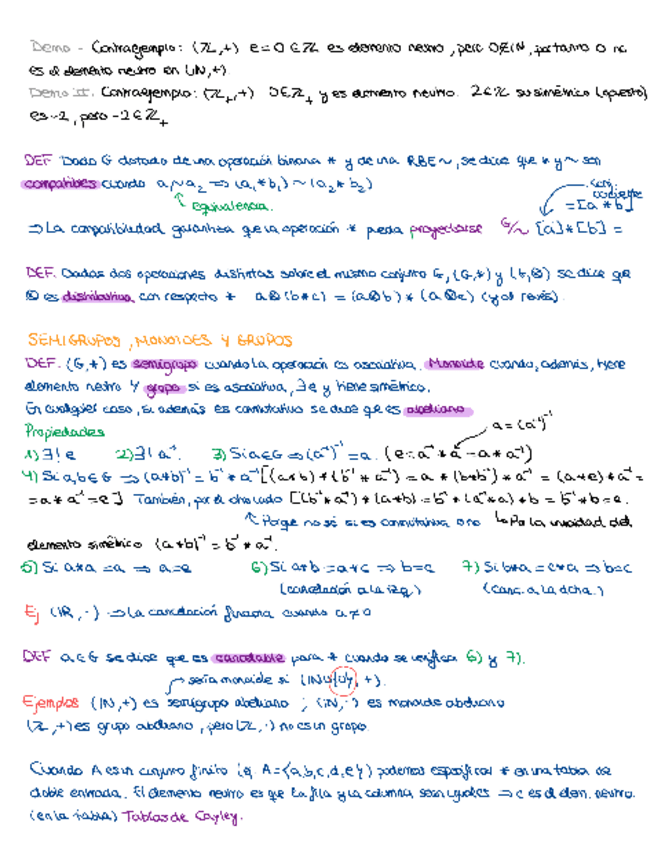 Demo - Contraejemplo: (ℤ,+) e=0∈ℤ es elemento neutro, pero 0∉ℕ, por tanto 0 no
es el elemento neutro en (ℕ,+)
Demo II. Contraejemplo: (ℤ₊,+) 0∈ℤ₊ y es elemento neutro. 2∈ℤ su simétrico (opuesto)
es -2, pero -2∈ℤ₊
DEF Dado G dotado de una operación binaria * y de una RBE ~, se dice que * y ~ son
compatibles cuando a₁~a₂ ⇒ (a₁*b₁) ~ (a₂*b₂)
equivalencia.
⇒ La compatibilidad garantiza que la operación * pueda proyectarse G/~ [a]*[b] =
= [a*b]
DEF. Dadas dos operaciones distintas sobre el mismo conjunto G, (G,*) y (G,⊗) se dice que
⊗ es distributiva con respecto * a⊗(b*c) = (a⊗b)*(a⊗c) (y al revés).
SEMIGRUPOS, MONOIDES Y GRUPOS
DEF. (G,*) es semigrupo cuando la operación es asociativa. Monoide cuando, además, tiene
elemento neutro y grupo si es asociativa, ∃e y tiene simétrico.
En cualquier caso, si además es conmutativo se dice que es abeliano
Propiedades
a=(a⁻¹)⁻¹
1) ∃! e 2) ∃! a⁻¹. 3) Si a∈G ⇒ (a⁻¹)⁻¹ = a. (e=a⁻¹*a=a*a⁻¹)
4) Si a,b∈G ⇒ (a*b)⁻¹ = b⁻¹*a⁻¹ [(a*b)*(b⁻¹*a⁻¹) = a*(b*b⁻¹)*a⁻¹ = (a*e)*a⁻¹ =
= a*a⁻¹ = e] También, por el otro lado [(b⁻¹*a⁻¹)*(a*b) = b⁻¹*(a⁻¹*a)*b = b⁻¹*b = e.
Porque no sé si es conmutativa o no Por la unicidad del
elemento simétrico (a*b)⁻¹ = b⁻¹*a⁻¹.
5) Si a*a = a ⇒ a=e 6) Si a*b = a*c ⇒ b=c 7) Si b*a = c*a ⇒ b=c
(cancelación a la izq.) (canc. a la dcha.)
Ej (ℝ,·) ⇒ La cancelación funciona cuando a≠0
DEF a∈G se dice que es cancelable para * cuando se verifica 6) y 7).
sería monoide si (ℕ∪{0}, +).
Ejemplos (ℕ,+) es semigrupo abeliano ; (ℕ,·) es monoide abeliano
(ℤ,+) es grupo abeliano, pero (ℤ,·) no es un grupo.
Cuando A es un conjunto finito A={a,b,c,d,e} podemos especificar * en una tabla de
doble entrada. El elemento neutro es que la fila y la columna sean iguales ⇒ c es el elem. neutro.
(en la tabla) Tablas de Cayley.